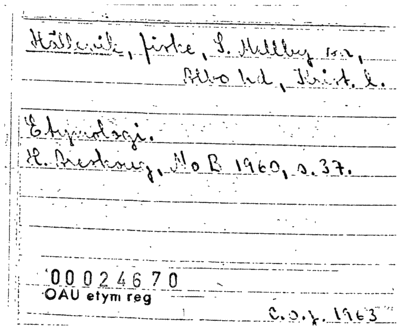 Hällevik, fiske, S. Mellby sn,
Albo hd, Krist. l.
Etymologi.
H. Breskoug, NoB 1960, s. 37.
00024670
OAU etym reg
C.O.J. 1963